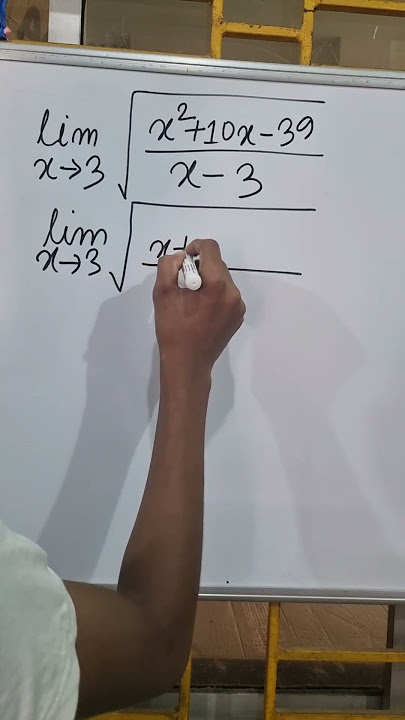 lim x→3 √((x²+10x-39)/(x-3))
lim x→3 √(x+